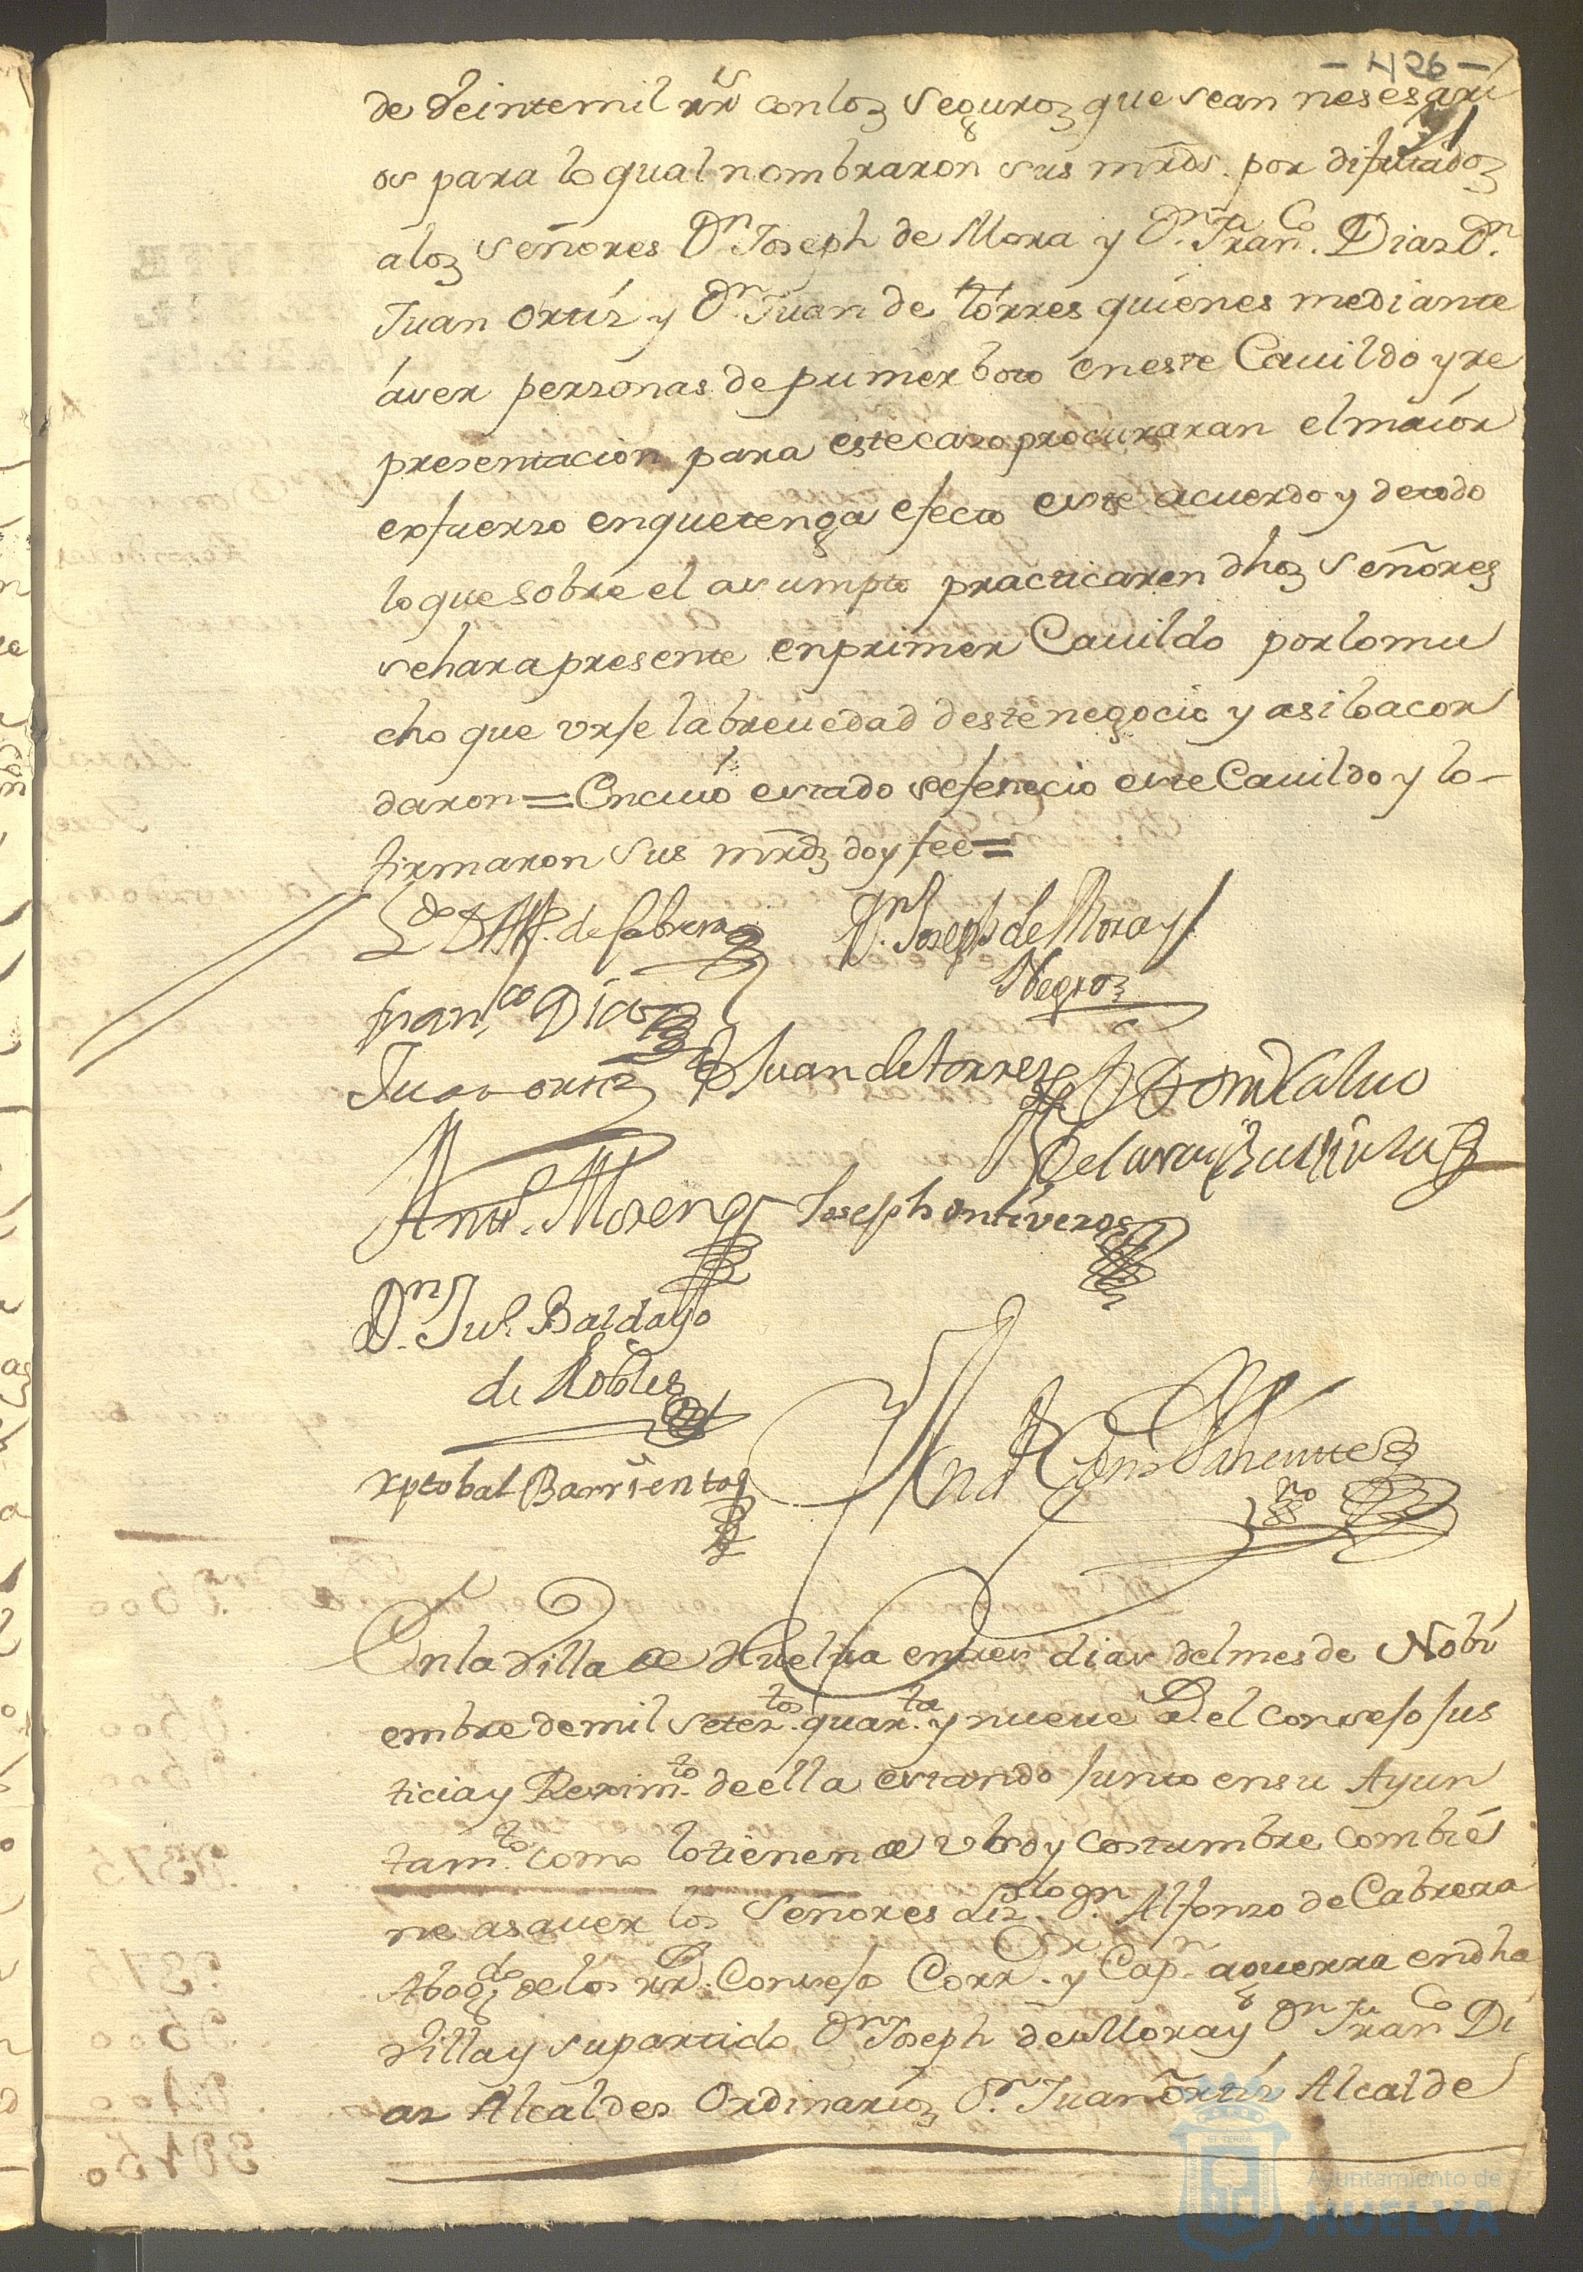 - 426 -
de Veinte mil rrs con los seguros que sean nesesari
os para lo qual nombraron sus mrds. por diputados
a los señores Dn. Joseph de Mora y Dn. Franco. Dias Dn.
Juan Ortiz y Dn. Juan de torres quienes mediante
áver personas de primer boto en este Cavildo y re
presentacion para este caso procuraran el maior
esfuerso en que tenga efecto este acuerdo y de todo
lo que sobre el asumpto practicaren dhos señores
se hara presente en primer Cavildo por lo mu
cho que urje la brevedad deste negocio y asi lo acor
daron = En cuio estado se fenecio este Cavildo y lo-
firmaron sus mrds doy fee =
Ldo D Alf. de Cabrera Dn. Joseph de Mora y
Negros
Franco Dias
Juan ortiz D Juan de torres
Antt. Moreno Joseph ontiveros
Dn. Jul. Baldayo
de Robles
xptobal Barrientos
En la Villa de Huelva en tres dias del mes de Nobi
embre de mil setez.tos quar.ta y nueve Del Consejo Jus
ticia y Reximto. de ella estando junto en su Ayun
tamto. como lo tienen de usso y costumbre combie
ne asaver los Señores Lizdo. Dn. Alfonso de Cabrera
Abogdo de los rrs. Consejos Corror. y Capn. a guerra en dha
Villa y su partido Dn Joseph de Mora y Dn Franco Di
as Alcaldes Ordinarios Dn. Juan Ortiz Alcalde
Ayuntamiento de
HUELVA